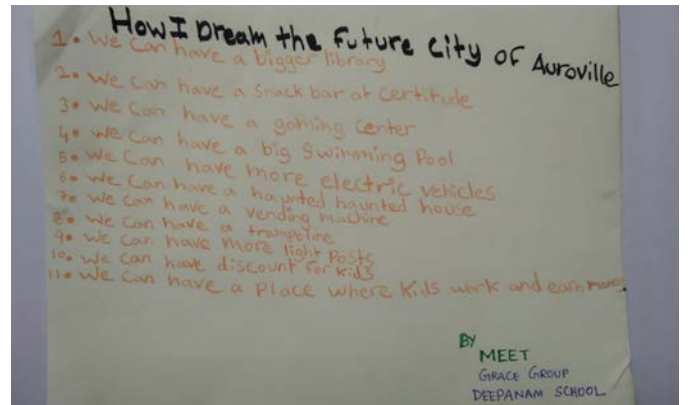 How I Dream the Future City of Auroville
1. We can have a bigger library
2. We can have a snack bar at certitude
3. We can have a gaming center
4. We can have a big Swimming Pool
5. We can have more electric vehicles
6. We can have a haunted haunted house
7. We can have a vending machine
8. We can have a trampoline
9. We can have more light posts
10. We can have discount for kids
11. We can have a place where kids work and earn
By
MEET
GRACE GROUP
DEEPANAM SCHOOL